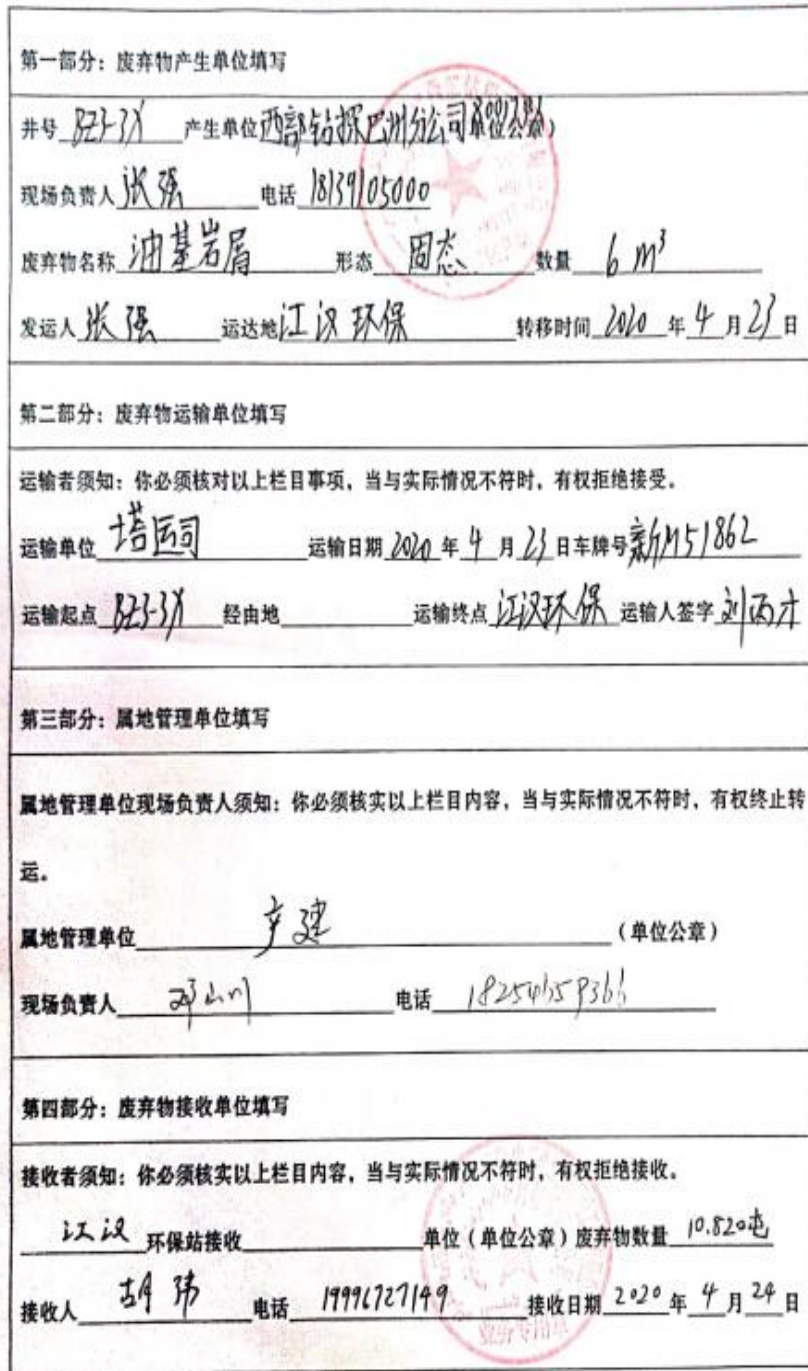 第一部分：废弃物产生单位填写
井号 BZ3-3X 产生单位 西部钻探巴州分公司 （单位公章）
现场负责人 张强 电话 18139105000
废弃物名称 油基岩屑 形态 固态 数量 6 m³
发运人 张强 运达地 江汉环保 转移时间 2020 年 4 月 23 日
第二部分：废弃物运输单位填写
运输者须知：你必须核对以上栏目事项，当与实际情况不符时，有权拒绝接受。
运输单位 塔运司 运输日期 2020 年 4 月 23 日 车牌号 新M51862
运输起点 BZ3-3X 经由地 运输终点 江汉环保 运输人签字 刘丙才
第三部分：属地管理单位填写
属地管理单位现场负责人须知：你必须核实以上栏目内容，当与实际情况不符时，有权终止转
运。
属地管理单位 产建 （单位公章）
现场负责人 邓山川 电话 18254659366
第四部分：废弃物接收单位填写
接收者须知：你必须核实以上栏目内容，当与实际情况不符时，有权拒绝接收。
江汉 环保站接收 单位（单位公章）废弃物数量 10.820吨
接收人 胡玮 电话 19996727149 接收日期 2020 年 4 月 24 日